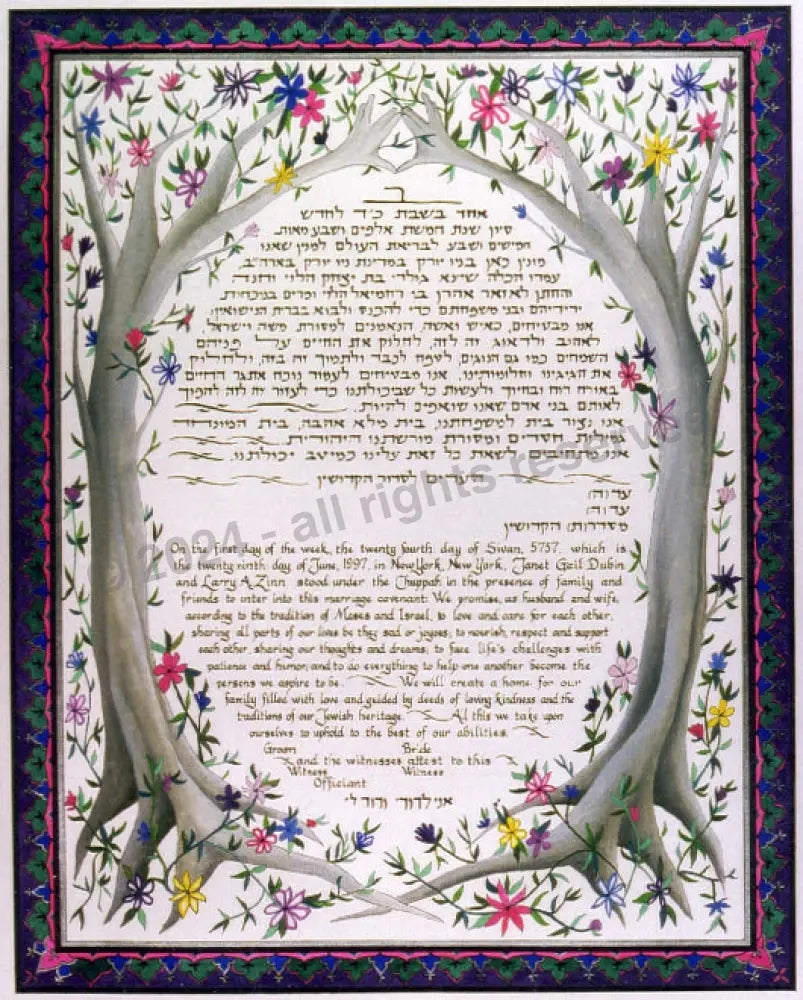 אחד בשבת כ״ד לחדש
סיון שנת חמשת אלפים ושבע מאות
חמישים ושבע לבריאת העולם למנין שאנו
מונין כאן בניו יורק במדינת ניו יורק בארה״ב
עמדו הכלה שיינא גולדי בת יצחק הלוי וחנה
והחתן לאזאר אהרן בן ירחמיאל הלוי ומרים בנוכחות
ידידיהם ובני משפחתם כדי להכנס ולבוא בברית הנישואין.
אנו מבטיחים, כאיש ואשה, הנאמנים למסורת משה וישראל,
לאהוב ולדאוג זה לזה, לחלוק את החיים על פניהם
השמחים כמו גם הנוגים, לטפח לכבד ולתמוך זה בזה, ולחלוק
את הגיגינו וחלומותינו. אנו מבטיחים לעמוד נוכח אתגר החיים
באורח רוח ובחיוך ולעשות כל שביכולתנו כדי לעזור זה לזה להפוך
לאותם בני אדם שאנו שואפים להיות.
אנו נצור בית למשפחתנו, בית מלא אהבה, בית המונחה
גמילות חסדים ומסורת מורשתנו היהודית.
אנו מתחייבים לשאת כל זאת עלינו כמיטב יכולתנו.
העדים לסדור הקדושין
עדות:
עדות:
מסדרות הקדושין
On the first day of the week, the twenty fourth day of Sivan, 5757, which is
the twenty ninth day of June, 1997, in New York, New York, Janet Gail Dubin
and Larry A. Zinn stood under the Chuppah in the presence of family and
friends to enter into this marriage covenant: We promise, as husband and wife,
according to the tradition of Moses and Israel, to love and care for each other,
sharing all parts of our lives be they sad or joyous; to nourish, respect and support
each other, sharing our thoughts and dreams; to face life's challenges with
patience and humor; and to do everything to help one another become the
persons we aspire to be. We will create a home for our
family filled with love and guided by deeds of loving kindness and the
traditions of our Jewish heritage. All this we take upon
ourselves to uphold to the best of our abilities.
Groom Bride
and the witnesses attest to this
Witness Witness
Officiant
אני לדודי ודודי לי
© 2024 - all rights reserved